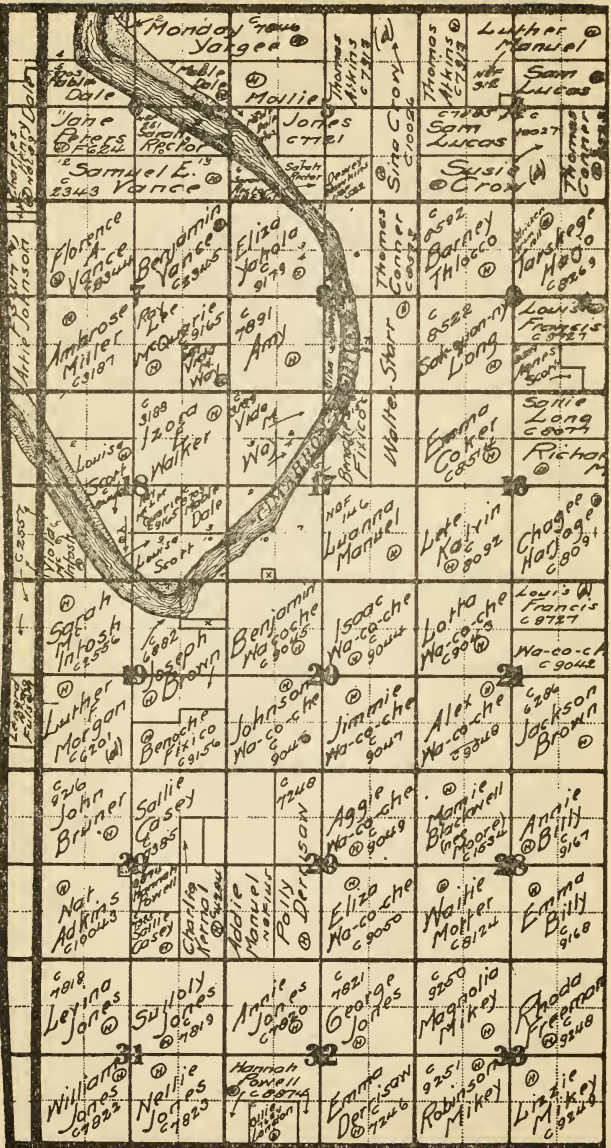 Monday
Yargee
C 7846
H
Luther
Manuel
H
Mable
Dale
Mable
Dale
H
Mollie
Jones
C 7721
Thomas
Atkins
C 7913
Sina Crow
C 10026
Thomas
Atkins
C 7913
H
NBF
312
Sam
Lucas
Jane
Peters
F 624
Sarah
Rector
C 7885
Sam
Lucas
C
10027
Thomas
Conner
Samuel E.
Vance
C
2343
Sarah
Rector
Susie
Crow (d)
Florence
A
Vance
C 2344
Benjamin
Vance
C 2345
Eliza
Yahola
C
9149
Thomas
Conner
C 8575
C
8592
Barney
Thlocco
Tarskege
Hago
C 8269
Ambrose
Miller
C 3187
Ray
Lee
McQuarie
C 9165
Vida
Way
C
7891
Amy
H
Walter Starr
C
8522
Sak-quon-ny
Long
Louis
Francis
C 9727
Agnes
Scott
Artie Johnson
C
3188
Izora
E
Walker
C
3189
Vida
Way
CIMARRON RIVER
Emma
Coker
C 8514
Sanie
Long
C 8077
Richar
Louisa
Scott
18
Mable
Dale
Louisa
Scott
17
NBF
146
Luanna
Manuel
Lete
Kalvin
C 8092
16
Chagee
Harjage
C 809
C 2557
Sarah
McIntosh
C 2556
C
6882
Joseph
Brown
Benjamin
Wa-co-che
C 9045
Isaac
Wa-co-che
C
9044
Lotha
Wa-co-che
C 9043
Louis (d)
Francis
C 9727
Wa-co-ch
C 9042
19
20
21
Luther
F
Morgan
C 6201
(d)
Benoche
Fixico
C 9156
Johnson
Wa-co-che
C
9046
Jimmie
Wa-co-che
C
9047
Alex
Wa-co-che
C 9048
C
6286
Jackson
Brown
C
9216
John
Bruner
Sallie
Casey
C
7385
C
7248
Polly
Derrisaw
Aggie
Wa-co-che
C 9049
Mamie
Blackwell
(nee
Moore)
C 1534
Annie
Billy
C
9167
30
29
28
Nat
Adkins
C 10043
Hannah
Powell
Sallie
Casey
Charlie
Kernal
Addie
Manuel
Eliza
Wa-co-che
C 9050
Waitie
Morter
C 8124
Emma
Billy
C
9168
C
7818
Levina
Jones
Sulloly
Jones
C
7819
Annie
Jones
C
7820
C
7821
George
Jones
C
9250
Magnolia
Mikey
Rhoda
Freeman
C
9248
31
32
33
William
Jones
C 7822
Nellie
Jones
C 7823
Hannah
Powell
C 8874
Ollie
London
Emma
Derrisaw
C
7246
C
9251
Robinson
Mikey
Lizzie
Mikey
C 9249